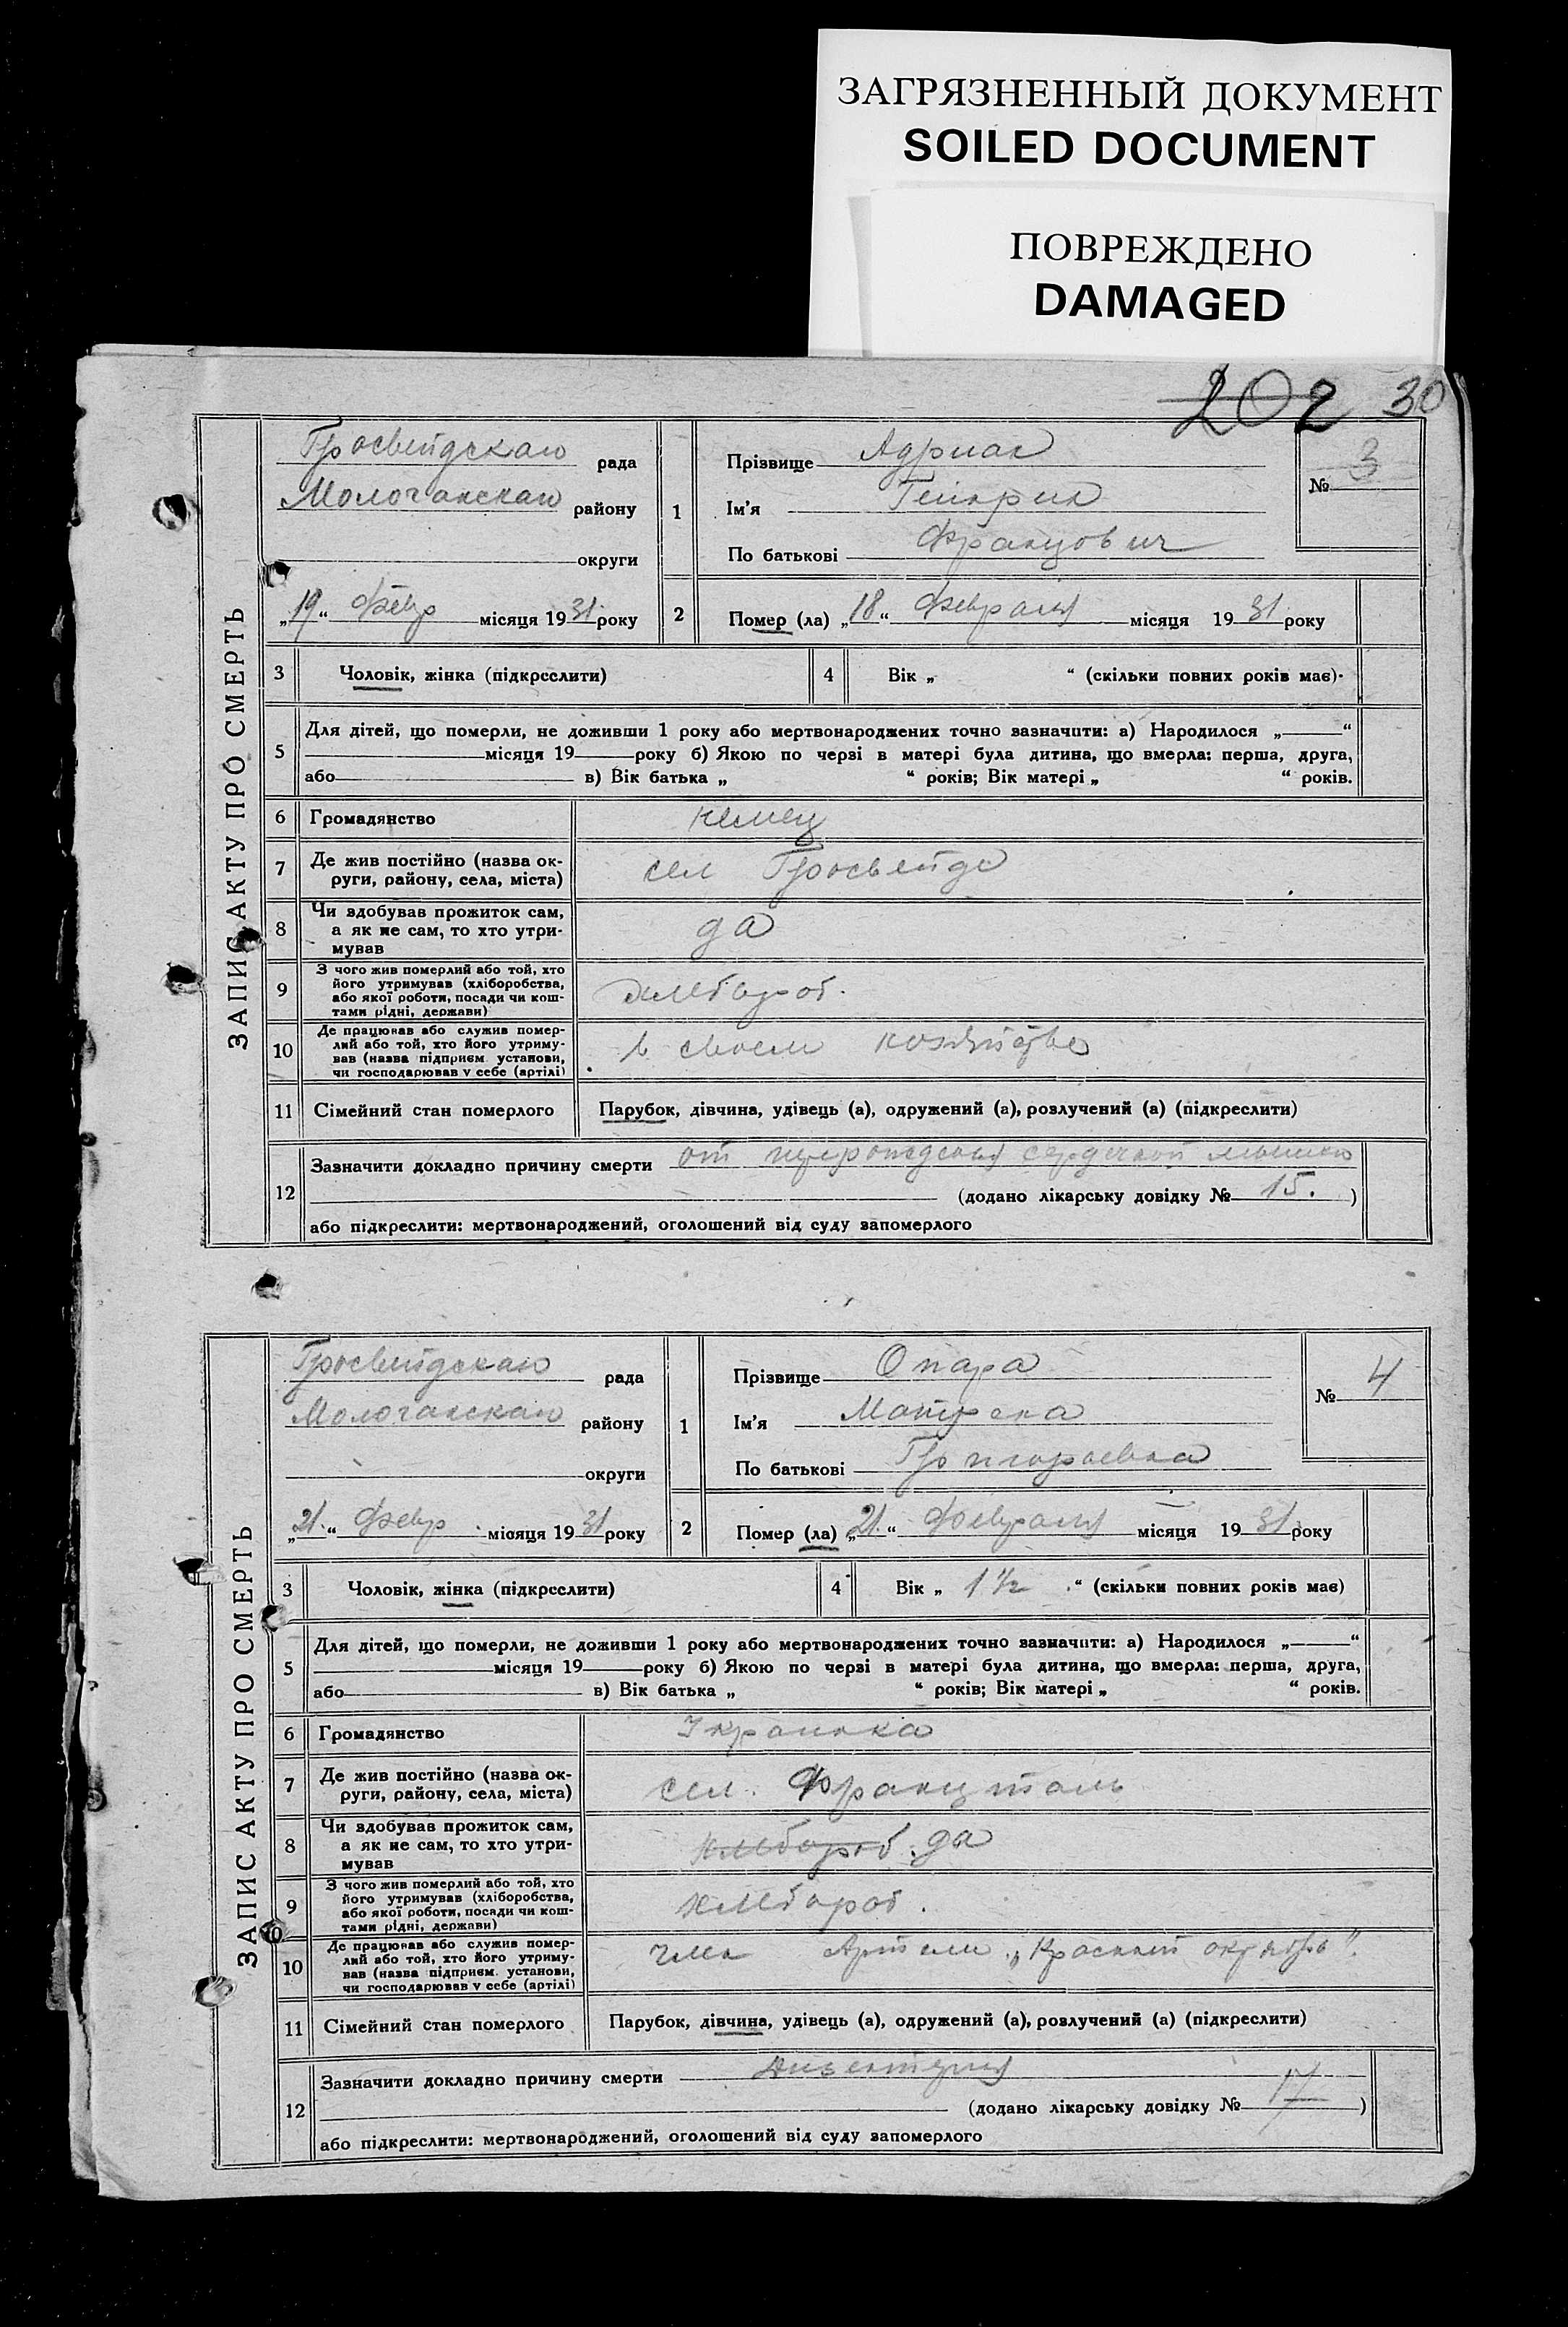 ЗАГРЯЗНЕННЫЙ ДОКУМЕНТ
SOILED DOCUMENT
ПОВРЕЖДЕНО
DAMAGED
202 30
ЗАПИС АКТУ ПРО СМЕРТЬ
Гросвейдская рада
Молочанская району
округи
„19“ Февр місяця 1931 року
1
Прізвище Адриас
Ім'я Гейнрих
По батькові Францович
№ 3
2 Помер (ла) „18“ Февраля місяця 1931 року
3 Чоловік, жінка (підкреслити)
4 Вік „ “ (скільки повних років має)·
5 Для дітей, що померли, не доживши 1 року або мертвонароджених точно зазначити: а) Народилося „ “
місяця 19 року б) Якою по черзі в матері була дитина, що вмерла: перша, друга,
або в) Вік батька „ “ років; Вік матері „ “ років.
6 Громадянство немец
7 Де жив постійно (назва ок-
руги, району, села, міста) сел Гросвейде
8 Чи здобував прожиток сам,
а як не сам, то хто утри-
мував да
9 З чого жив померлий або той, хто
його утримував (хліборобства,
або якої роботи, посади чи кош-
тами рідні, держави) хлебороб.
10 Де працював або служив помер-
лий або той, хто його утриму-
вав (назва підприєм. установи,
чи господарював у себе (артілі) в своем хозяйстве
11 Сімейний стан померлого Парубок, дівчина, удівець (а), одружений (а), розлучений (а) (підкреслити)
12 Зазначити докладно причину смерти от перерождения сердечной мышцы
(додано лікарську довідку № 15. )
або підкреслити: мертвонароджений, оголошений від суду запомерлого
ЗАПИС АКТУ ПРО СМЕРТЬ
Гросвейдская рада
Молочанская району
округи
„21.“ Февр. місяця 1931 року
1
Прізвище Опара
Ім'я Мотрена
По батькові Григораевна
№ 4
2 Помер (ла) „21.“ Февраля місяця 1931 року
3 Чоловік, жінка (підкреслити)
4 Вік „ 1 ½ “ (скільки повних років має)
5 Для дітей, що померли, не доживши 1 року або мертвонароджених точно зазначити: а) Народилося „ “
місяця 19 року б) Якою по черзі в матері була дитина, що вмерла: перша, друга,
або в) Вік батька „ “ років; Вік матері „ “ років.
6 Громадянство Украинка
7 Де жив постійно (назва ок-
руги, району, села, міста) сел. Францталь
8 Чи здобував прожиток сам,
а як не сам, то хто утри-
мував хлебороб. да
9 З чого жив померлий або той, хто
його утримував (хліборобства,
або якої роботи, посади чи кош-
тами рідні, держави) хлебороб.
10 Де працював або служив помер-
лий або той, хто його утриму-
вав (назва підприєм. установи,
чи господарював у себе (артілі) член Артели „Красный октябрь“.
11 Сімейний стан померлого Парубок, дівчина, удівець (а), одружений (а), розлучений (а) (підкреслити)
12 Зазначити докладно причину смерти Дизентерия
(додано лікарську довідку № 17 )
або підкреслити: мертвонароджений, оголошений від суду запомерлого